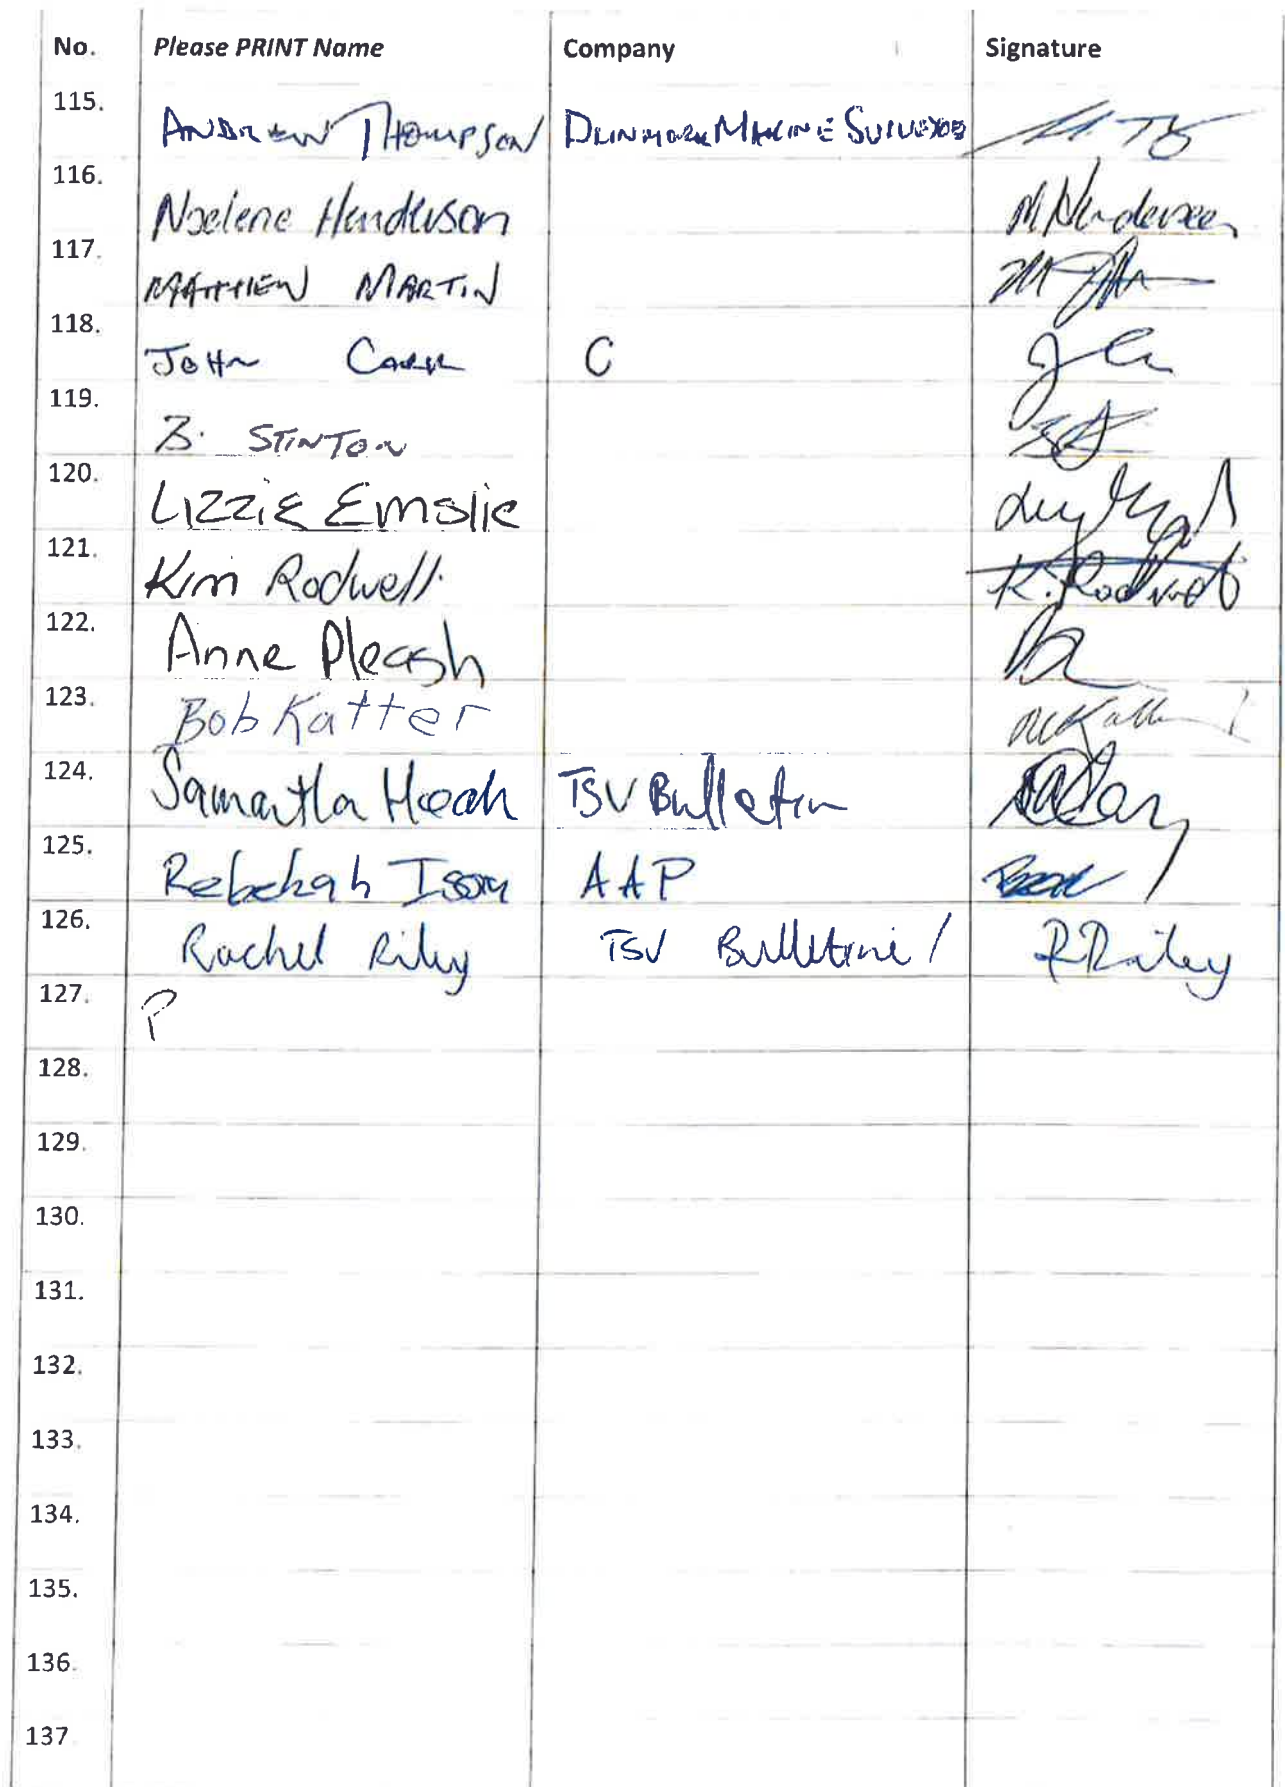 No. Please PRINT Name Company Signature
115. ANDREW THOMPSON MARINE
116. Noelene Henderson
117. MATTHEW MARTIN
118. JOHN CARR C
119. B. STINTON
120. LIZZIE Emslie
121. Kim Rodwell K. Rodwell
122. Anne Pleash
123. Bob Katter
124. Samantha TSV Bulletin
125. Rebekah AAP
126. Rachel Riley TSV Bulletin / R Riley
127. P
128.
129.
130.
131.
132.
133.
134.
135.
136.
137